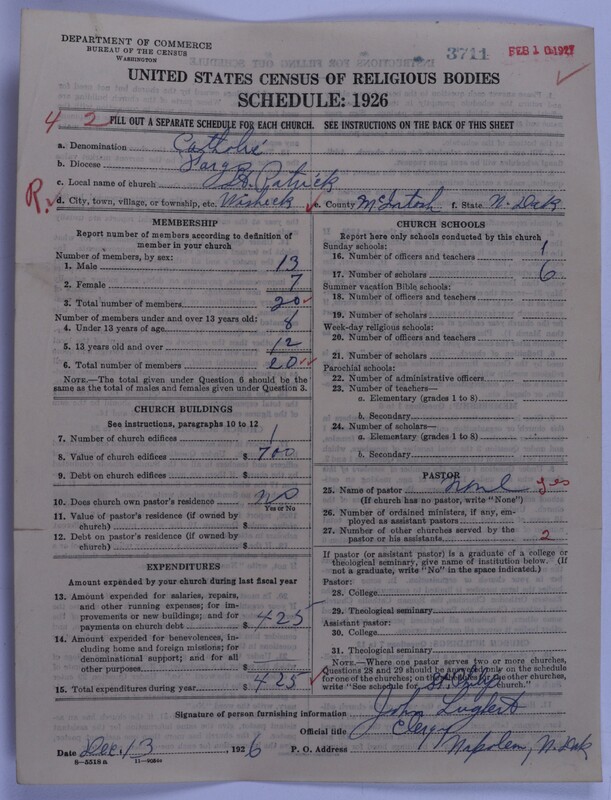 DEPARTMENT OF COMMERCE
BUREAU OF THE CENSUS
WASHINGTON
3711
FEB 10 1927
UNITED STATES CENSUS OF RELIGIOUS BODIES
SCHEDULE: 1926
4 2
FILL OUT A SEPARATE SCHEDULE FOR EACH CHURCH. SEE INSTRUCTIONS ON THE BACK OF THIS SHEET
a. Denomination Catholic
b. Diocese Fargo
c. Local name of church St. Patrick
R. d. City, town, village, or township, etc. Wishek e. County McIntosh f. State N. Dak
MEMBERSHIP
Report number of members according to definition of
member in your church
Number of members, by sex:
1. Male 13
2. Female 7
3. Total number of members 20
Number of members under and over 13 years old:
4. Under 13 years of age 8
5. 13 years old and over 12
6. Total number of members 20
NOTE.—The total given under Question 6 should be the
same as the total of males and females given under Question 3.
CHURCH BUILDINGS
See instructions, paragraphs 10 to 12
7. Number of church edifices 1
8. Value of church edifices $ 700
9. Debt on church edifices $
10. Does church own pastor's residence? no
Yes or No
11. Value of pastor's residence (if owned by
church) $
12. Debt on pastor's residence (if owned by
church) $
EXPENDITURES
Amount expended by your church during last fiscal year
13. Amount expended for salaries, repairs,
and other running expenses; for im-
provements or new buildings; and for
payments on church debt $ 425
14. Amount expended for benevolences, in-
cluding home and foreign missions; for
denominational support; and for all
other purposes $
15. Total expenditures during year $ 425
CHURCH SCHOOLS
Report here only schools conducted by this church
Sunday schools:
16. Number of officers and teachers 1
17. Number of scholars 6
Summer vacation Bible schools:
18. Number of officers and teachers
19. Number of scholars
Week-day religious schools:
20. Number of officers and teachers
21. Number of scholars
Parochial schools:
22. Number of administrative officers
23. Number of teachers—
a. Elementary (grades 1 to 8)
b. Secondary
24. Number of scholars—
a. Elementary (grades 1 to 8)
b. Secondary
PASTOR
25. Name of pastor none yes
(If church has no pastor, write "None")
26. Number of ordained ministers, if any, em-
ployed as assistant pastors
27. Number of other churches served by the
pastor or his assistants 2
If pastor (or assistant pastor) is a graduate of a college or
theological seminary, give name of institution below. (If
not a graduate, write "No" in the space indicated.)
Pastor:
28. College
29. Theological seminary
Assistant pastor:
30. College
31. Theological seminary
NOTE.—Where one pastor serves two or more churches,
Questions 28 and 29 should be answered only on the schedule
for one of the churches; on the schedules for the other churches,
write "See schedule for St. church."
Signature of person furnishing information John
Official title Clergy
Date Dec. 13, 1926 P. O. Address Napoleon, N. Dak
8—5518a 11—90844